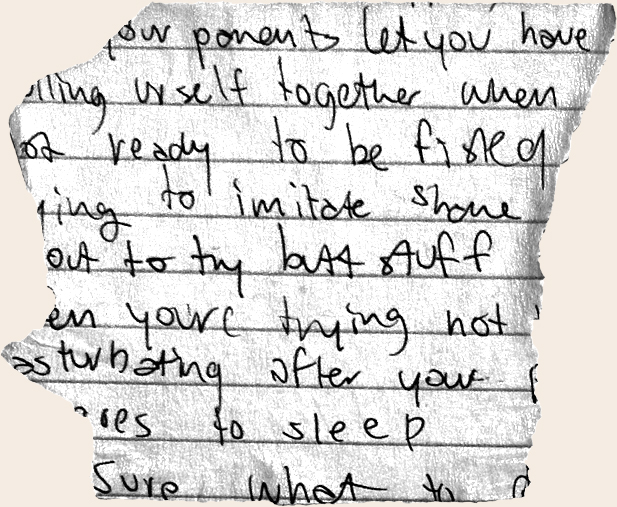 our parents let you have
lling urself together when
ot ready to be fisted
ying to imitate
out to try butt stuff
en youre trying not
asturbating after your
oes to sleep
sure what to